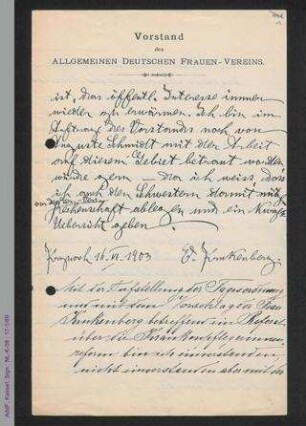 Vorstand
des
ALLGEMEINEN DEUTSCHEN FRAUEN-VEREINS.
ist, das öffentl. Interesse immer
wieder zu erwärmen. Ich bin im
Auftrag des Vorstands noch von
Auguste Schmidt mit der Arbeit
auf diesem Gebiet betraut worden
würde gern
ich auch den Schwestern damit
Rechenschaft ablegen und ein
Uebersicht geben.
Kreuznach 16. VI. 1903 E. Krukenberg.
Mit der Aufstellung der Tagesordnung
und mit dem Vorschlag der Frau
Krukenberg betreffend ein Referat
über die Krankenpflegerinnen
reform bin ich einverstanden,
nicht einverstanden aber mit der